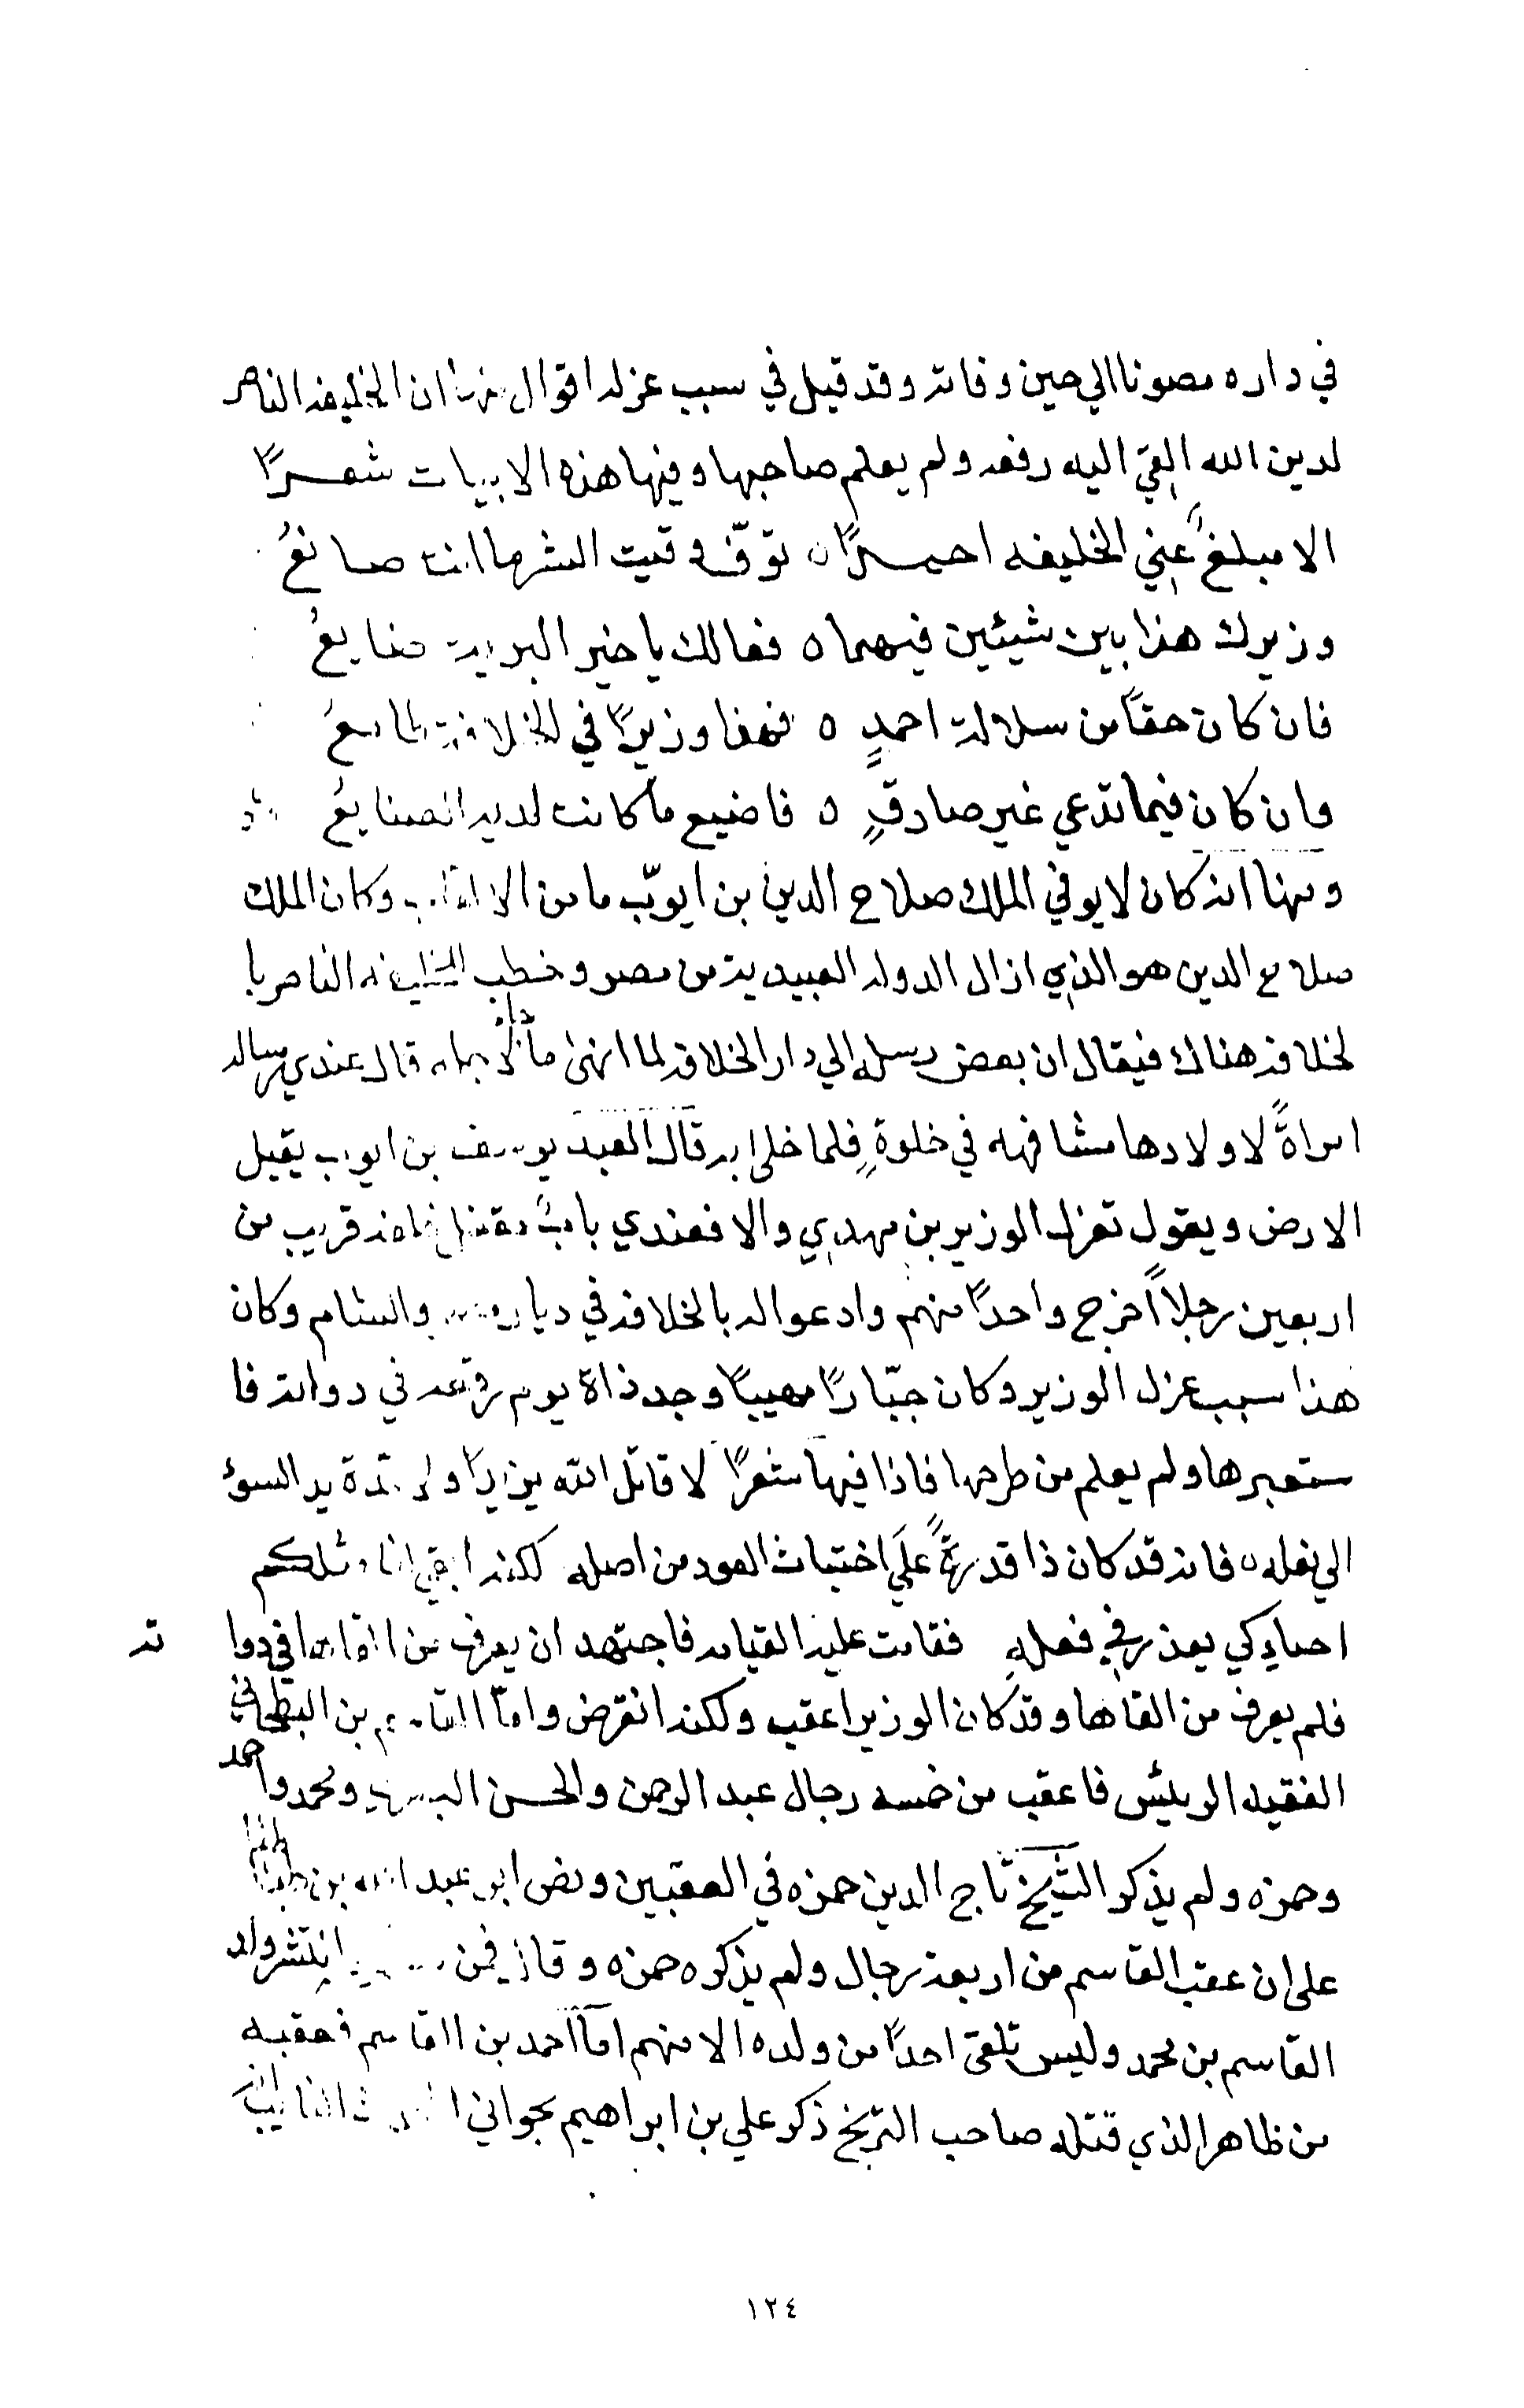 في داره مصونا الي حين وفاته وقد قيل في سبب عزله اقوال منها ان الخليفه الناصر
لدين الله القي اليه رقعه ولم يعلم صاحبها وفيها هذه الابيات شعرًا
الا مبلغ عني الخليفه احمدًا ه توقّ وقيت الشر ما انت صانعُ
وزيرك هذا بين شيئين فيهما ه فعالك يا خير البريه ضايعُ
فان كان حقًا من سلالة احمدٍ ه فهذا وزيرًا في الخلافة طامعُ
وان كان فيما تدعي غير صادقٍ ه فاضيع ما كانت لديه الصنايعُ
ومنها انه كان لا يوفي الملك صلاح الدين بن ايوّب ما من الالقاب وكان الملك
صلاح الدين هو الذي ازال الدوله العبيدية من مصر وخطب الخليفه الناصر با
لخلافه هناك فيقال ان بعض رسله الي دار الخلافه لما انهى ما جاء قال عندي رساله
امراةً لاولادها مشافهه في خلوةٍ فلما خلى به قال العبد يوسف بن ايوب يقبل
الارض ويقول تعزل الوزير بن مهدي والا فعندي باب مقفل خلفه قريب من
اربعين رجلاً اخرج واحدًا منهم وادعو اله بالخلافه في ديار مصر والشام وكان
هذا سبب عزل الوزير وكان جبّارًا مهيبًا وجد ذاة يوم رقعه في دواته فا
ستعبرها ولم يعلم من طرحها فاذا فيها شعرًا لا قاتل الله يزيدًا ولا مدة يد السوء
الي نعله ه فانه قد كان ذا قدرةً علَي اختبات العود من اصله لكنه ابقي لنا مثلكم
احياء كي يعذر في فعلهِ فقامت عليه القيامه فاجتهد ان يعرف من القاها في دوا ته
فلم يعرف من القاها وقد كان الوزير اعقب ولكنه انقرض وامّا القاسم بن البطحاني
الفقيه الرئيس فاعقب من خمسه رجال عبد الرحمن والحسن البصري ومحمد واحمد
وحمزه ولم يذكر الشيخ تاج الدين حمزه في المعقبين ونص ابو عبد الله بن طباطبا
على ان عقب القاسم من اربعة رجال ولم يذكره حمزه وقال فمن انتشر ولد
القاسم بن محمد وليس تلقى احدًا من ولده الا منهم امّا احمد بن القاسم فعقبه
من ظاهر الذي قتله صاحب الزنج ذكر علي بن ابراهيم بجواني
١٢٤